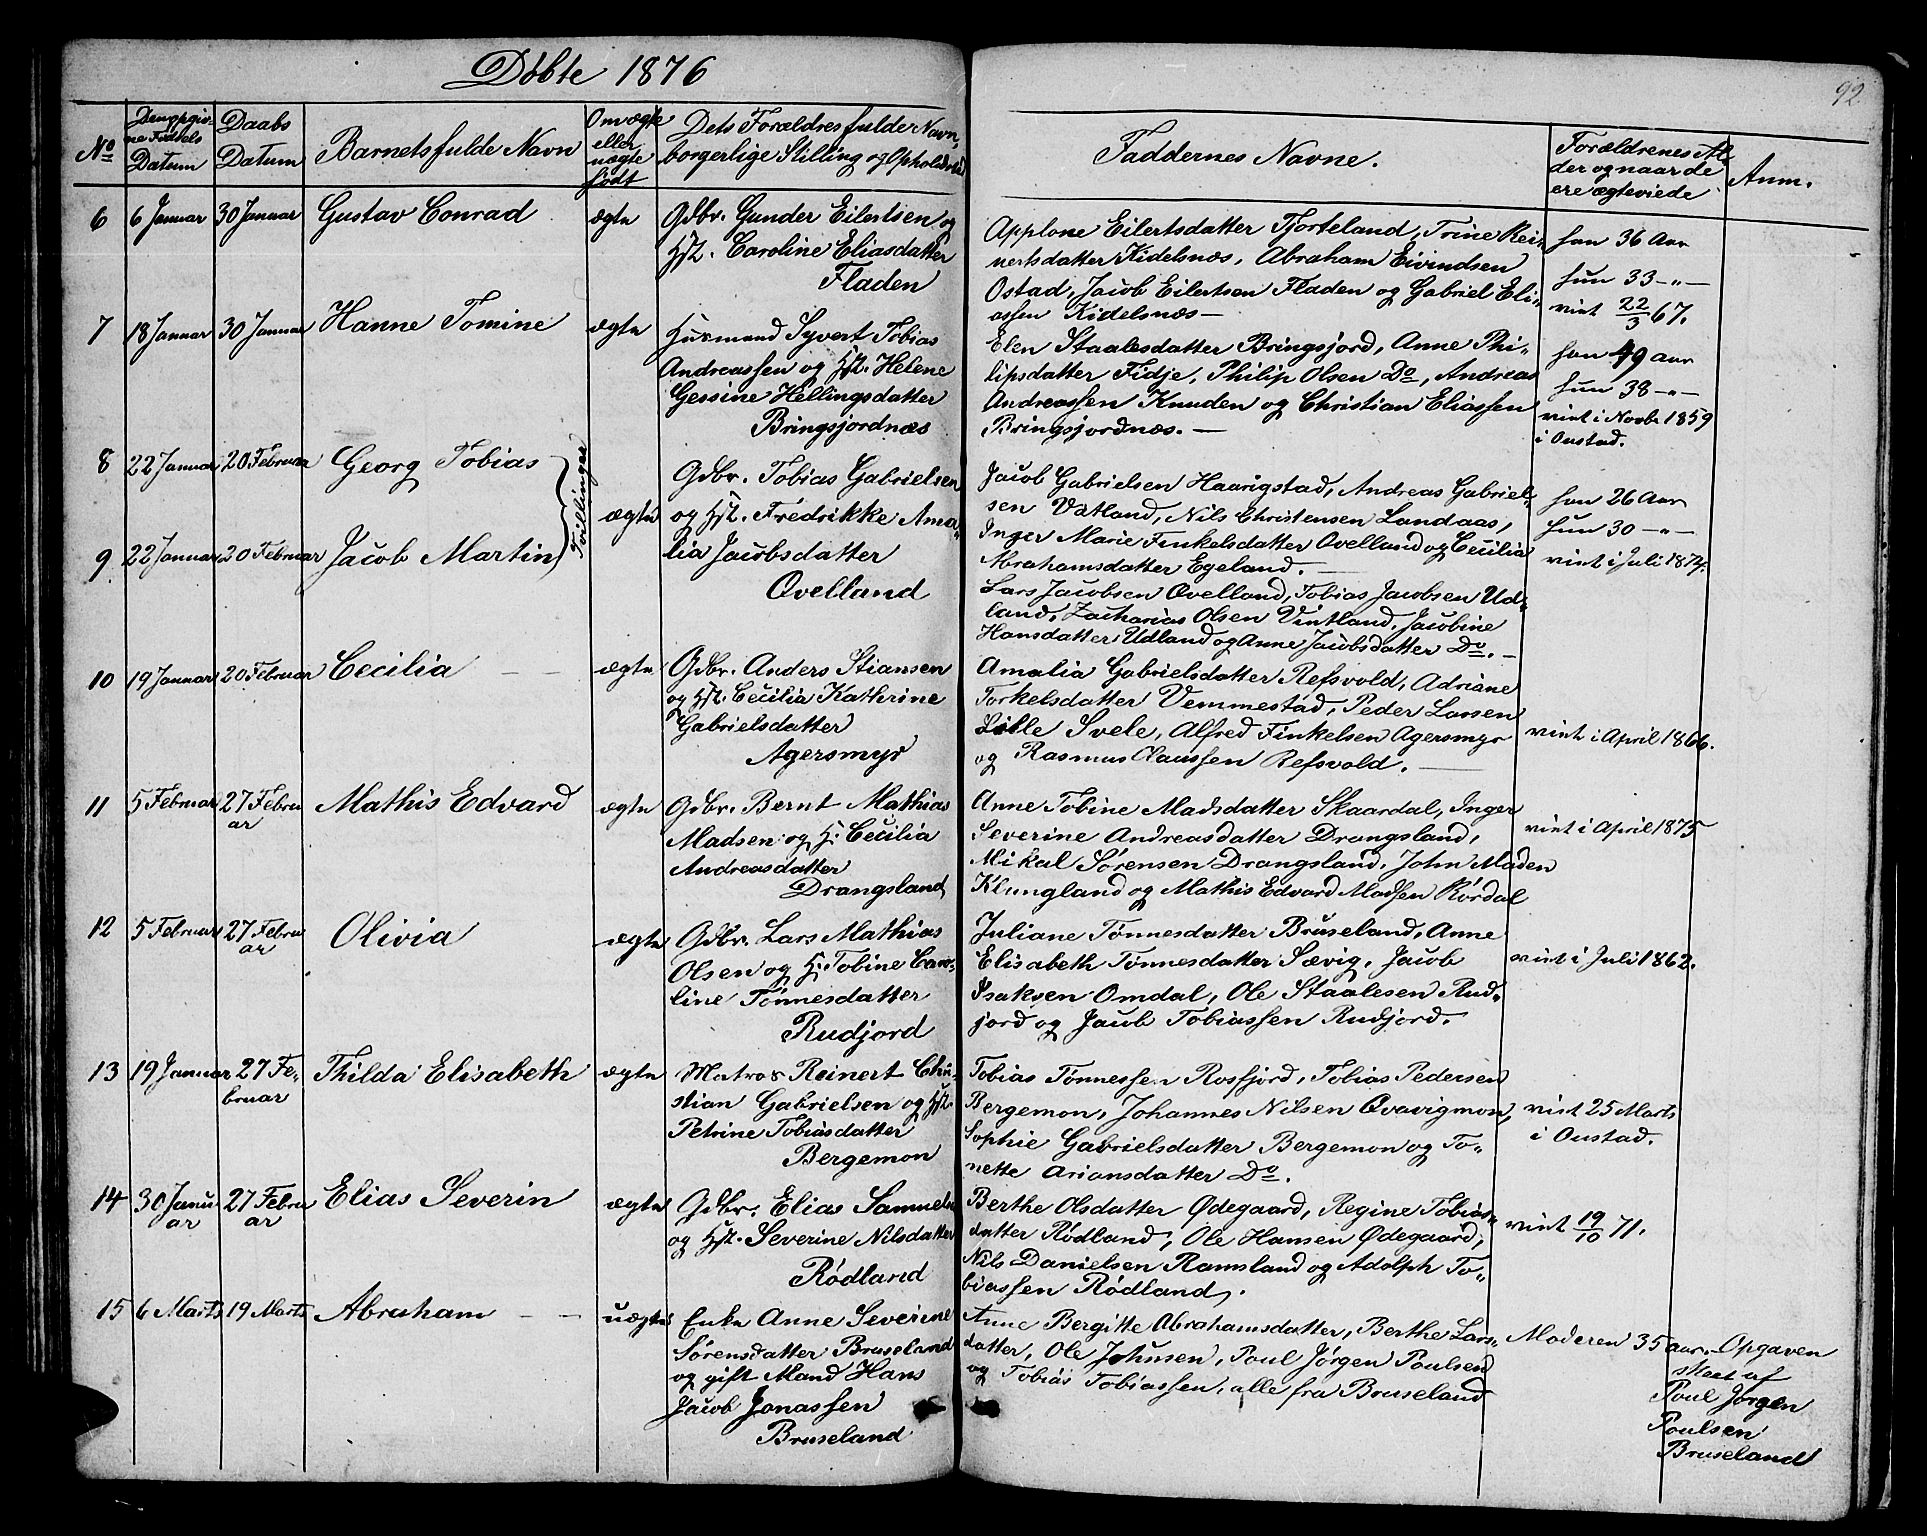 Døbte 1876
92
No
Den opgiv-
ne Fødsels
Datum
Daabs
Datum
Barnets fulde Navn
Om ægte
eller
uægte
født
Dets Forældres fulde Navn,
borgerlige Stilling og Opholdssted
Faddernes Navne.
Forældrenes Al-
der og naar de
ere ægteviede
Anm.
6
6 Januar
30 Januar
Gustav Conrad
ægte
Gdbr. Gunder Eilertsen og
Hst. Caroline Eliasdatter
Fladen
Applone Eilertsdatter Fjorteland, Trine Rei-
nertsdatter Kidelsnæs, Abraham Eivindsen
Ostad, Jacob Eilertsen Fladen og Gabriel Eli-
assen Kidelsnæs —
han 36 Aar
hun 33 -"-
viet 22/3 67.
7
18 Januar
30 Januar
Hanne Tomine
ægte
Husmand Syvert Tobias
Andreassen og Hst. Helene
Gessine Hellingsdatter
Bringsjordnæs
Elen Staalesdatter Bringsjord, Anne Phi-
lipsdatter Fidje, Philip Olsen Do, Andreas
Andreassen Knuden og Christian Eliassen
Bringsjordnæs. —
han 49 aar
hun 38 -"-
viet i Novbr 1859
i Oustad.
8
22 Januar
20 Februar
Georg Tobias
Tvillinger
ægte
Gdbr. Tobias Gabrielsen
og Hst. Fredrikke Ama-
lia Jacobsdatter
Qvelland
Jacob Gabrielsen Haarigstad, Andreas Gabriel-
sen Vatland, Nils Christensen Landaas,
Inger Marie Finkelsdatter Qvelland og Cecilia
Abrahamsdatter Egeland. —
han 26 Aar
hun 30 -"-
viet i Juli 1874.
9
22 Januar
20 Februar
Jacob Martin
Lars Jacobsen Qvelland, Tobias Jacobsen Ud-
land, Zacharias Olsen Vintland, Jacobine
Hansdatter Udland og Anne Jacobsdatter Do. —
10
19 Januar
20 Februar
Cecilia — —
ægte
Gdbr. Anders Stiansen
og Hst. Cecilia Katherine
Gabrielsdatter
Agersmyr
Amalia Gabrielsdatter Refsvold, Adriane
Torkelsdatter Vemmestad, Peder Larsen
Lille Svele, Alfred Finkelsen Agersmyr
og Rasmus Claussen Refsvold. —
viet i April 1866.
11
5 Februar
27 Febru
ar
Mathis Edvard
ægte
Gdbr. Bernt Mathias
Madsen og H. Cecilia
Andreasdatter
Drangsland
Anne Tobine Madsdatter Skaardal, Inger
Severine Andreasdatter Drangsland,
Mikal Sørensen Drangsland, John Madsen
Klungland og Mathis Edvard Madsen Rørdal
viet i April 1875
12
5 Februar
27 Febru
ar
Olivia
ægte
Gdbr. Lars Mathias
Olsen og H. Tobine Caro-
line Tønnesdatter
Rudjord
Juliane Tønnesdatter Bruseland, Anne
Elisabeth Tønnesdatter Sævig, Jacob
Isaksen Omdal, Ole Staalesen Rud-
jord og Jacob Tobiassen Rudjord.
viet i Juli 1862.
13
19 Januar
27 Fe-
bruar
Thilda Elisabeth
ægte
Matros Reinert Chri-
stian Gabrielsen og Hst.
Petrine Tobiasdatter
Bergemon
Tobias Tønnessen Rosfjord, Tobias Pedersen
Bergemon, Johannes Nilsen Qvavigmon,
Sophie Gabrielsdatter Bergemon og To-
nette Ariansdatter Do.
viet 25 Marts
i Oustad.
14
30 Janu-
ar
27 Febru
ar
Elias Severin
ægte
Gdbr. Elias Samuelsen
og Hst. Severine Nilsdatter
Rødland
Berthe Olsdatter Ødegaard, Regine Tobias-
datter Rødland, Ole Hansen Ødegaard,
Nils Danielsen Ramsland og Adolph To-
biassen Rødland.
viet 19/10 71.
15
6 Marts
19 Marts
Abraham — —
uægte
Enke Anne Severine
Sørensdatter Bruseland
og gift Mand Hans
Jacob Jonassen
Bruseland
Anne Bergitte Abrahamsdatter, Berthe Lars-
datter, Ole Johnsen, Poul Jørgen Poulsen
og Tobias Tobiassen, alle fra Bruseland
Moderen 35 aar.
Opgaven
skeet af
Poul Jørgen
Poulsen
Bruseland